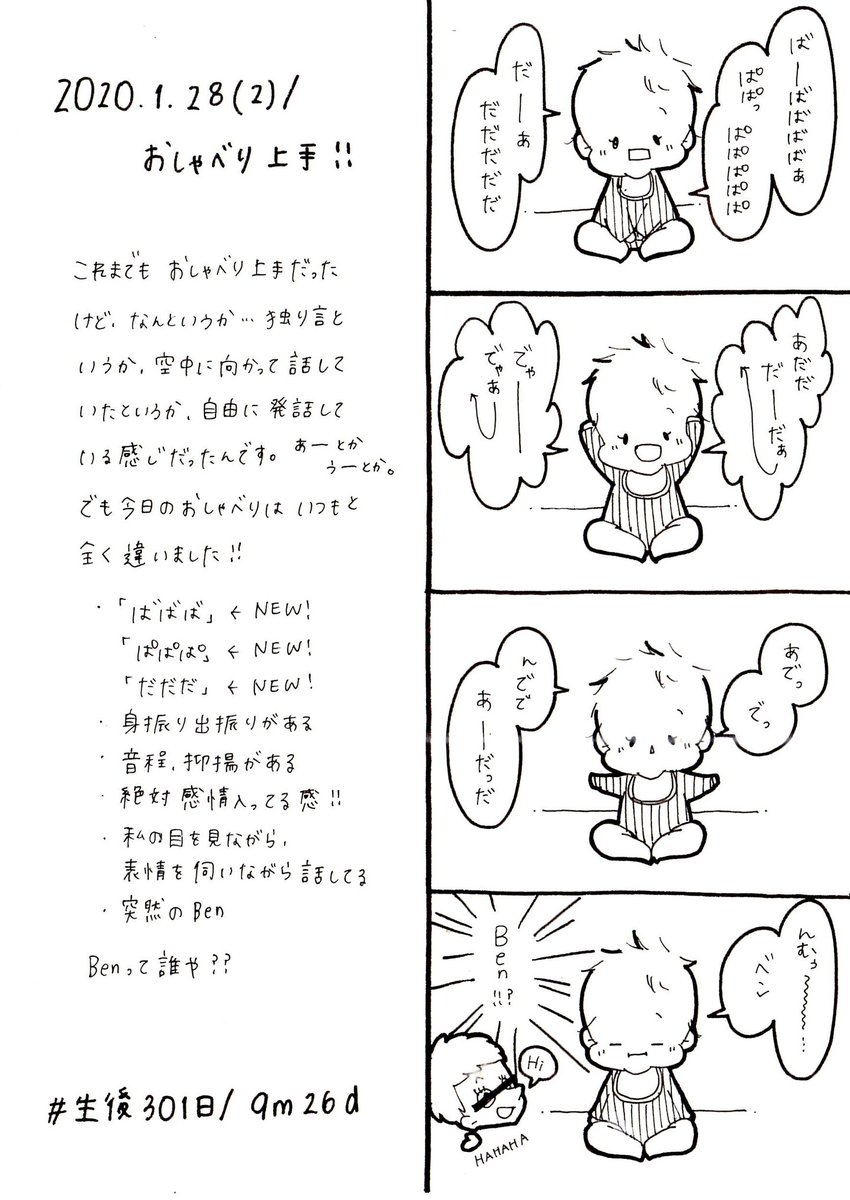 2020.1.28(2)/
おしゃべり上手!!
これまでも おしゃべり上手だった
けど、なんというか…独り言と
いうか、空中に向かって話して
いたというか、自由に発話して
いる感じだったんです。あーとか
うーとか。
でも今日のおしゃべりは いつもと
全く違いました!!
・「ばばば」← NEW!
「ぱぱぱ」← NEW!
「だだだ」← NEW!
・身振り出振りがある
・音程、抑揚がある
・絶対感情入ってる感!!
・私の目を見ながら、
表情を伺いながら話してる
・突然のBen
Benって誰や??
#生後301日/ 9m26d
ばーばばばばぁ
ぱぱっ
ぱぱぱぱぱ
だーぁ
だだだだだ
あだだ
だーだぁ
でゃー
でゃぁ
あでっ
でっ
んでで
あーだっだ
んむぅ〜〜〜…
ベン
Ben!!?
Hi
HAHAHA